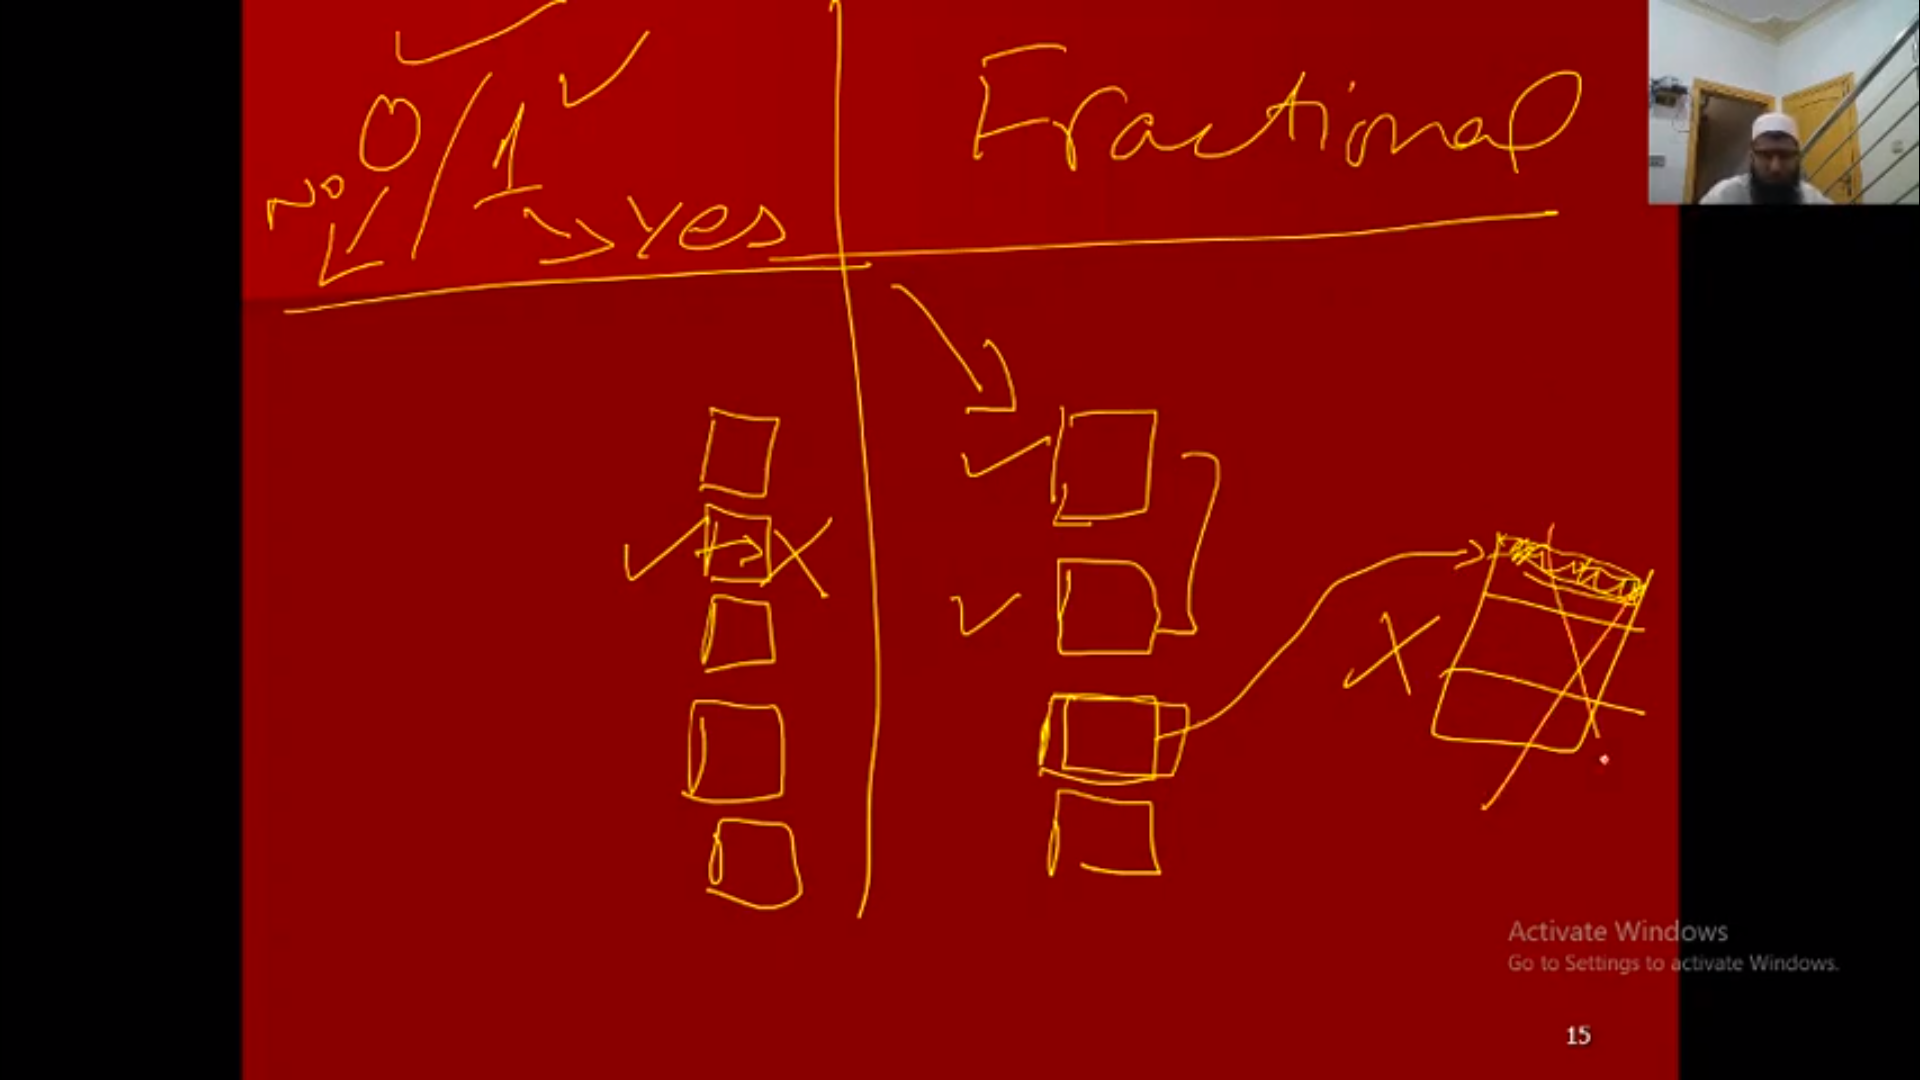 0/1
Fractional
No
Yes
Activate Windows
Go to Settings to activate Windows.
15